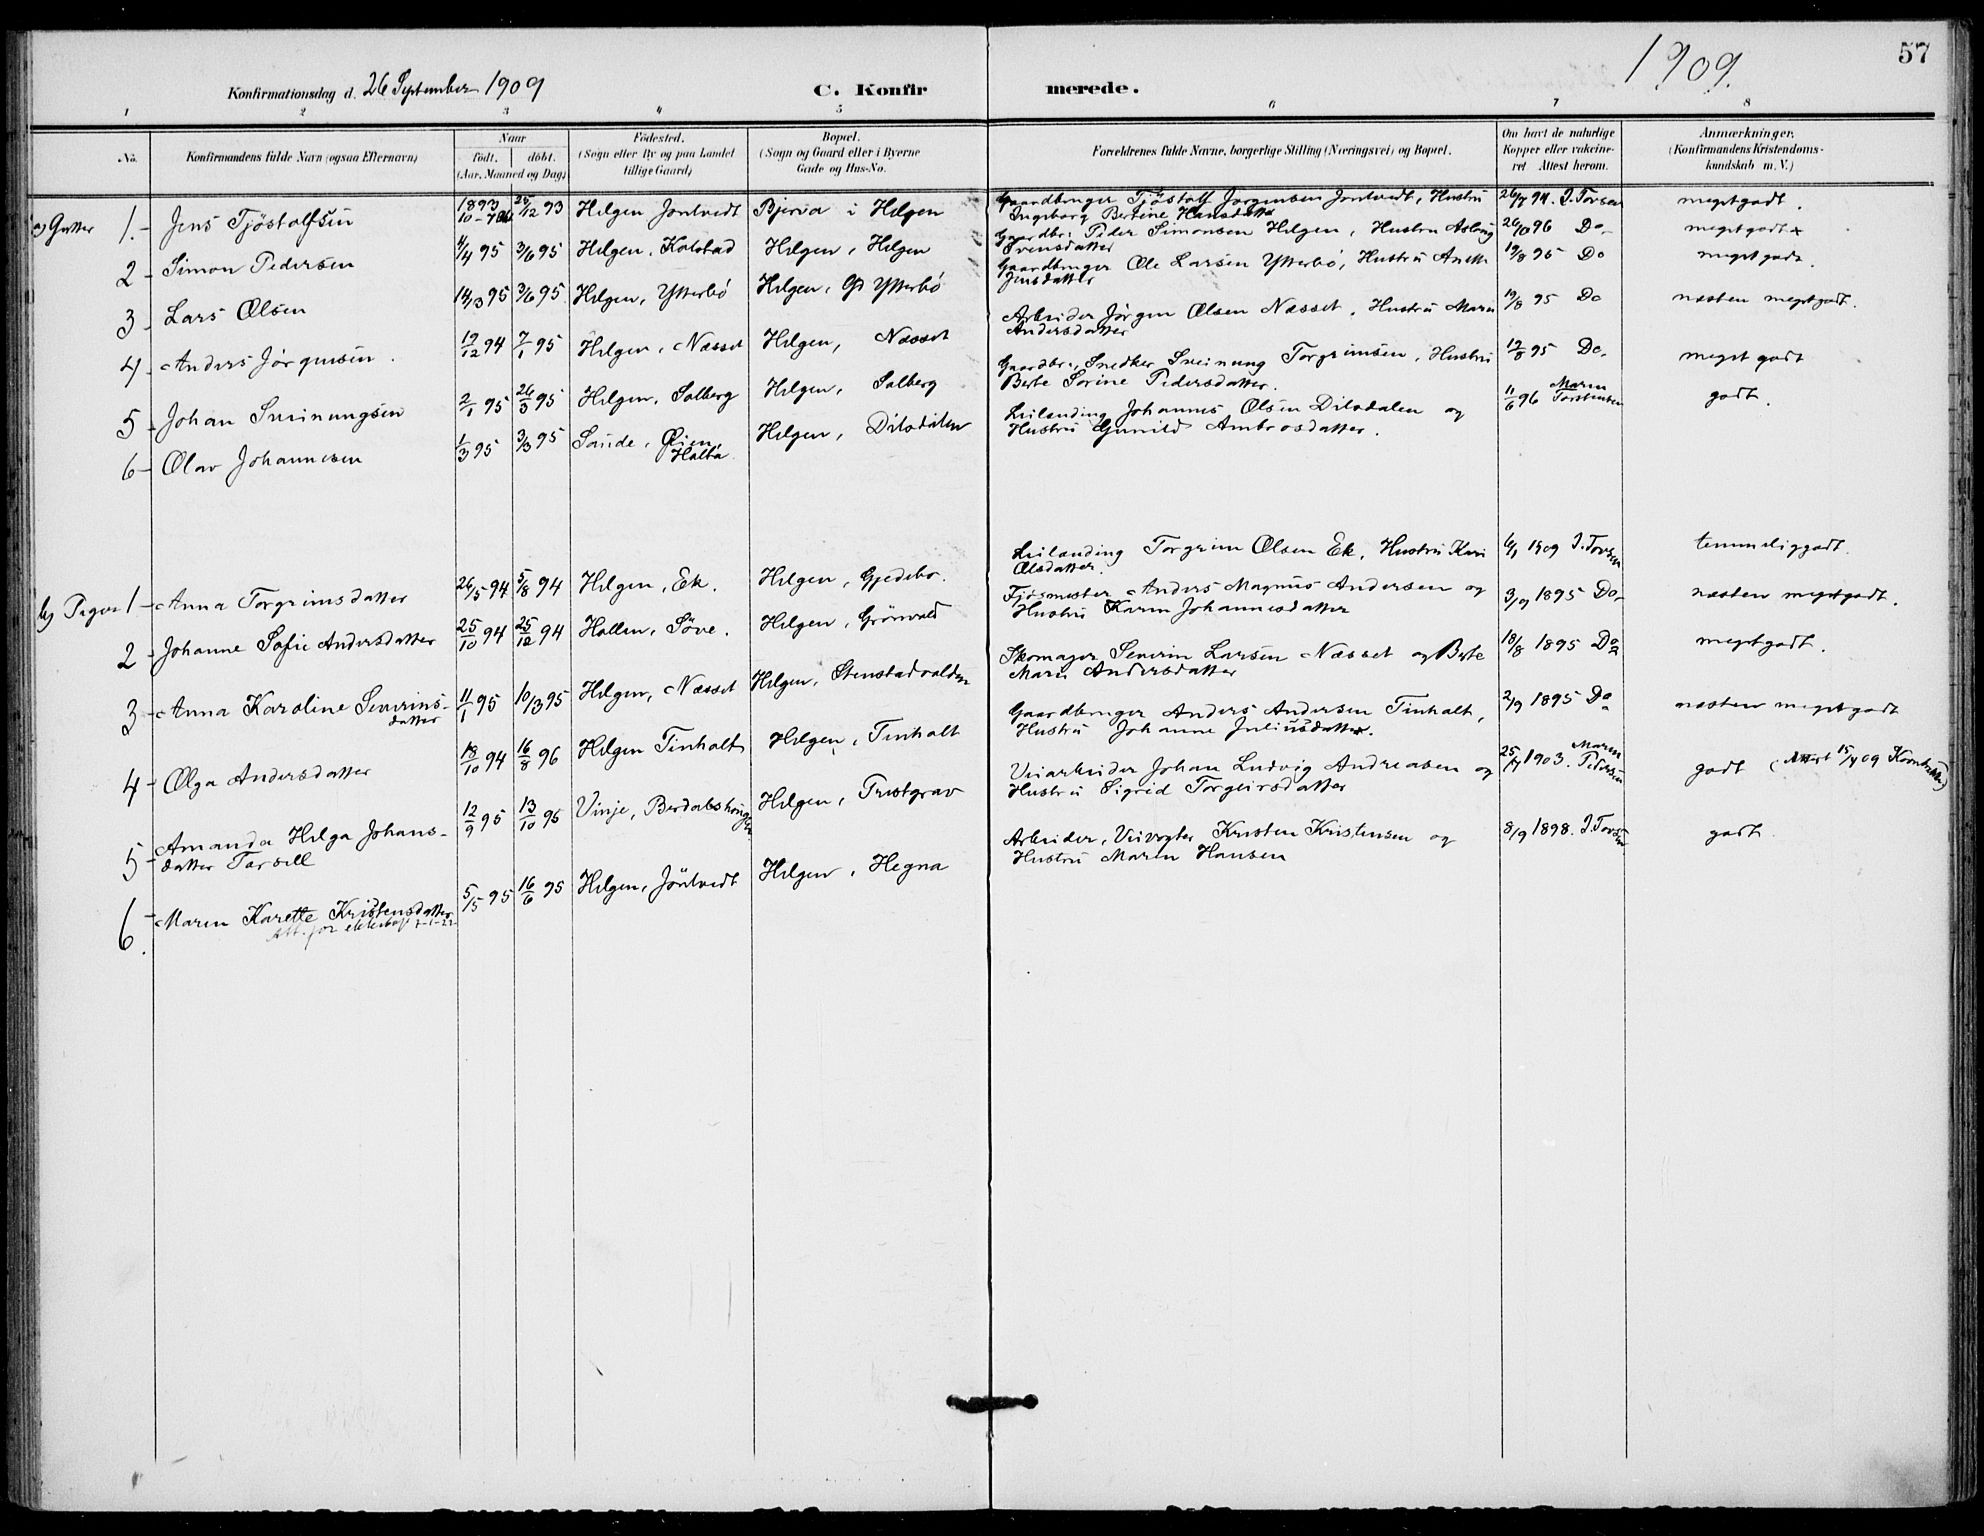 57
1909.
Konfirmationsdag d. 26 September 1909
C. Konfirmerede.
1 2 3 4 5 6 7 8
No.
Konfirmandens fulde Navn (ogsaa Efternavn)
Naar
født. døbt.
(Aar, Maaned og Dag)
Fødested.
(Sogn eller By og paa Landet
tillige Gaard)
Bopæl.
(Sogn og Gaard eller i Byerne
Gade og Hus-No.
Forældrenes fulde Navne, borgerlige Stilling (Næringsvei) og Bopæl.
Om havt de naturlige
Kopper eller vakcine-
ret Attest herom.
Anmærkninger.
(Konfirmandens Kristendoms-
kundskab m. V.)
a) Gutter 1. Jens Tjøstolfsen 1893 28/12 93 Helgen Jontvedt Bjerva i Helgen
Gaardbruger Tjøstolf Jørgensen Jontvedt, Hustru
Ingeborg Bertine Hansdatter
94. J. Torsen meget godt.
2 Simon Pedersen 4/4 95 3/6 95 Helgen, Kolstad Helgen, Helgen
Gaardbr: Peder Simonsen Helgen, Hustru Aslaug
Svensdatter
26/10 96 Do meget godt
3 Lars Olsen 14/3 95 3/6 95 Helgen, Ytterbö Helgen, Gd Ytterbö
Gaardbruger Ole Larsen Ytterbö, Hustru Aneth
Jensdatter
19/8 95 Do meget godt.
4 Anders Jörgensen. 12/12 94 7/1 95 Helgen, Næsset Helgen, Næsset
Arbeider Jørgen Olsen Næsset, Hustru Maren
Andersdatter
19/8 95 Do næsten meget godt.
5 Johan Sveinungsen 2/1 95 26/3 95 Helgen, Solberg Helgen, Solberg
Gaardbr:, Snedker Sveinung Torgrimsen, Hustru
Berte Sorine Pedersdatter.
19/8 95 Do. meget godt
6 Olav Johannesen 1/3 95 3/3 95 Saude, Øien,
Halta. Helgen, Dilsdalen
Leilending Johannes Olsen Dilsdalen og
Hustru Gunild Ambrosdatter.
11/6 96 Maren
Torstensen godt.
b) Piger 1 Anna Torgrimsdatter 26/5 94 5/8 94 Helgen, Ek. Helgen, Gjedebo.
Leilending Torgrim Olsen Ek, Hustru Kari
Olsdatter.
1909 J. Torsen temmelig godt.
2 Johanne Sofie Andersdatter 25/10 94 25/12 94 Hollen, Söve. Helgen, Grönvold
Fjösmester Anders Magnus Andersen og
Hustru Karen Johannesdatter
3/9 1895 Do næsten meget godt.
3 Anna Karoline Severins-
datter 11/1 95 10/3 95 Helgen, Næsset Helgen, Stenstadvolden
Skomager Severin Larsen Næsset og Berte
Maren Andersdatter
18/8 1895 Do meget godt.
4 Olga Andersdatter 18/10 94 16/8 96 Helgen Tinholt Helgen, Tinholt
Gaardbruger Anders Andersen Tinholt,
Hustru Johanne Juliusdatter.
2/9 1895 Do næsten meget godt
5 Amanda Helga Johans-
datter Tarsell 12/9 95 13/10 95 Vinje, Helgen, Trostgrav
Veiarbeider Johan Ludvig Andreasen og
Hustru Sigrid Torgeirsdatter
1903. Maren
Pedersen godt (Attest 15/4 09
6. Maren Karette Kristensdatter
Att. for 5/5 95 16/6 95 Helgen, Jöntvedt Helgen, Hegna
Arbeider, Veivogter Kristen Kristensen og
Hustru Maren Hansen
8/9 1898. J. Torsen godt.